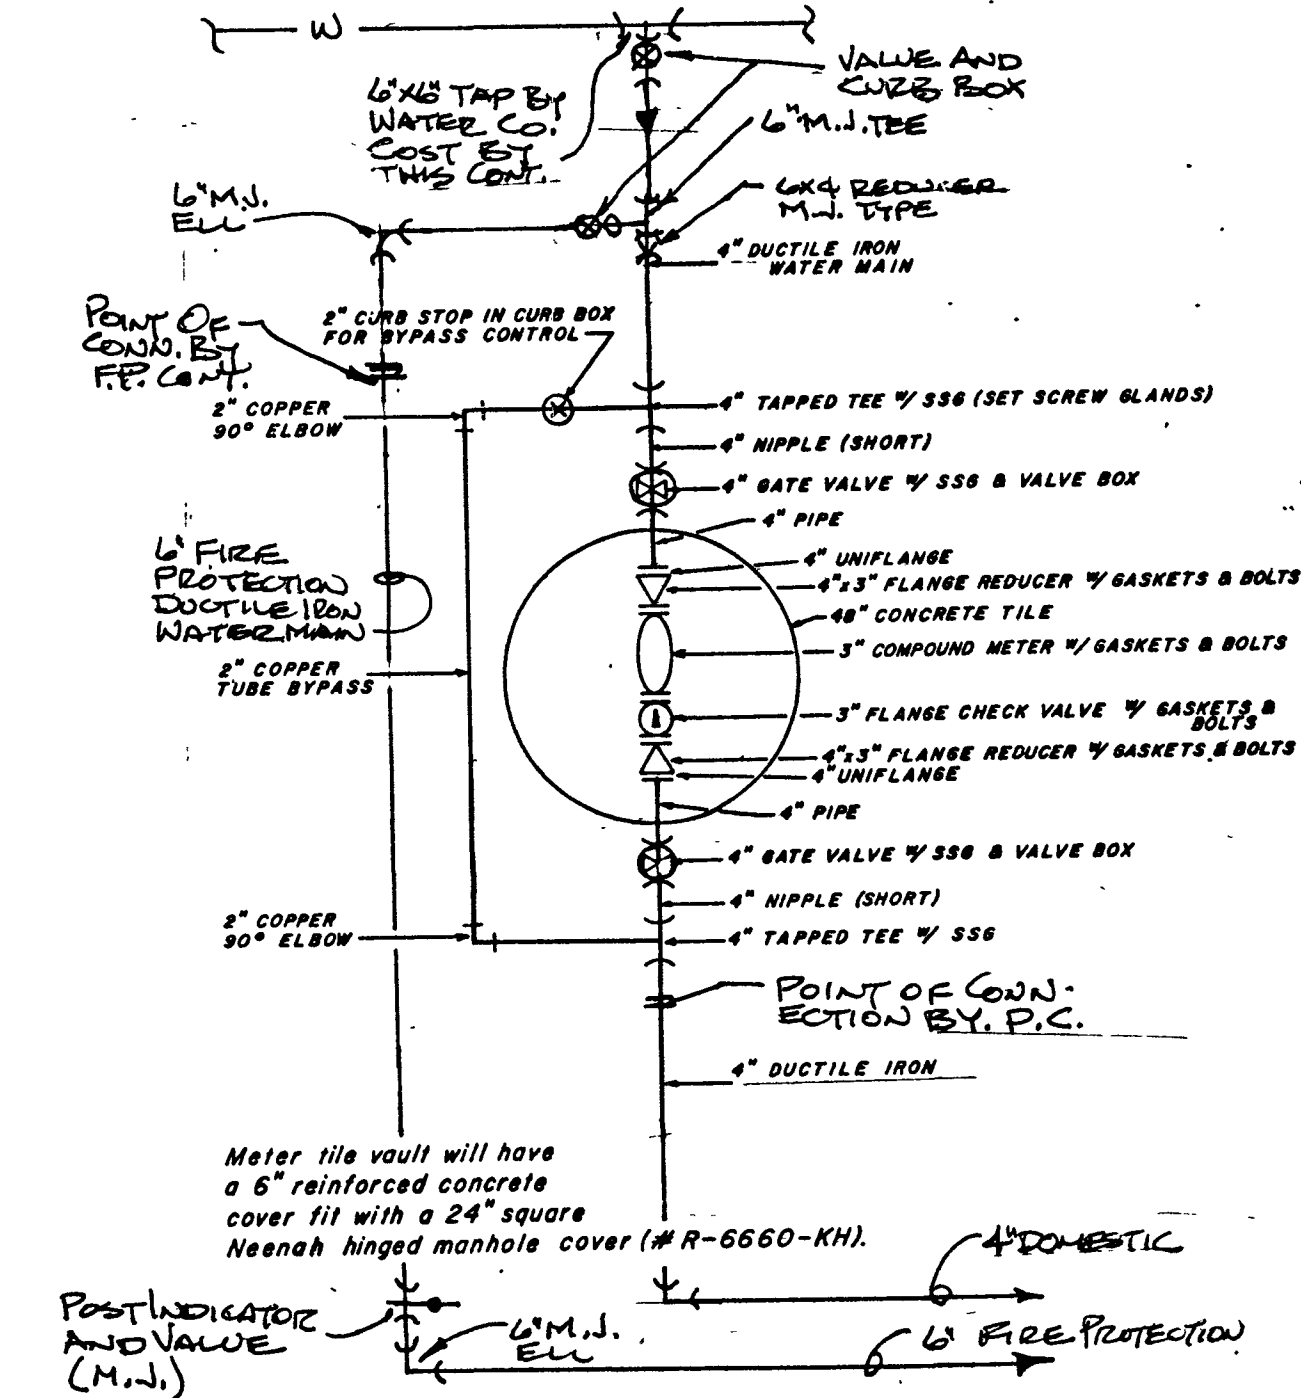 W
VALUE AND
CURB BOX
6"X6" TAP BY
WATER CO.
COST BY
THIS CONT.
6" M.J. TEE
6X4 REDUCER
M.J. TYPE
6" M.J.
ELL
4" DUCTILE IRON
WATER MAIN
POINT OF
CONN. BY
F.P. CONT.
2" CURB STOP IN CURB BOX
FOR BYPASS CONTROL
2" COPPER
90° ELBOW
4" TAPPED TEE W/ SSG (SET SCREW GLANDS)
4" NIPPLE (SHORT)
4" GATE VALVE W/ SSG & VALVE BOX
4" PIPE
4" UNIFLANGE
4"x3" FLANGE REDUCER W/ GASKETS & BOLTS
48" CONCRETE TILE
6" FIRE
PROTECTION
DUCTILE IRON
WATER MAIN
3" COMPOUND METER W/ GASKETS & BOLTS
2" COPPER
TUBE BYPASS
3" FLANGE CHECK VALVE W/ GASKETS &
BOLTS
4"x3" FLANGE REDUCER W/ GASKETS & BOLTS
4" UNIFLANGE
4" PIPE
4" GATE VALVE W/ SSG & VALVE BOX
4" NIPPLE (SHORT)
2" COPPER
90° ELBOW
4" TAPPED TEE W/ SSG
POINT OF CONN-
ECTION BY. P.C.
4" DUCTILE IRON
Meter tile vault will have
a 6" reinforced concrete
cover fit with a 24" square
Neenah hinged manhole cover (# R-6660-KH).
4" DOMESTIC
POST INDICATOR
AND VALUE
(M.J.)
6" M.J.
ELL
6" FIRE PROTECTION